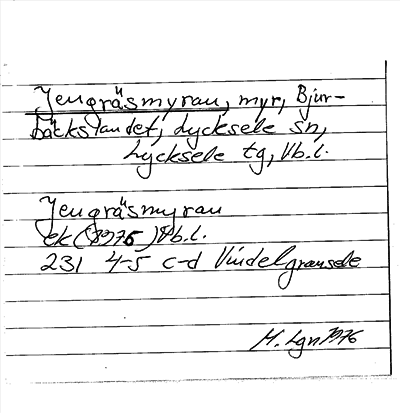 Jengräsmyran, myr, Bjur-
bäckslandet, Lycksele sn,
Lycksele tg, Vb.l.
Jengräsmyran
ek (1976) Vb.l.
231 4-5 c-d Vindelgransele
H. Lgn 1976